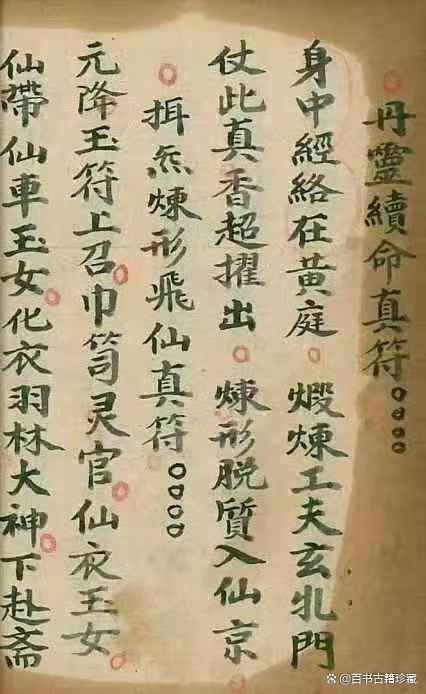 丹靈續命真符
身中經絡在黃庭 煅煉工夫玄牝門
仗此真香超擢出 煉形脫質入仙京
揖炁煉形飛仙真符
元降玉符上召巾笥灵官仙衣玉女
仙帶仙車玉女化衣羽林大神下赴斋
百书古籍珍藏